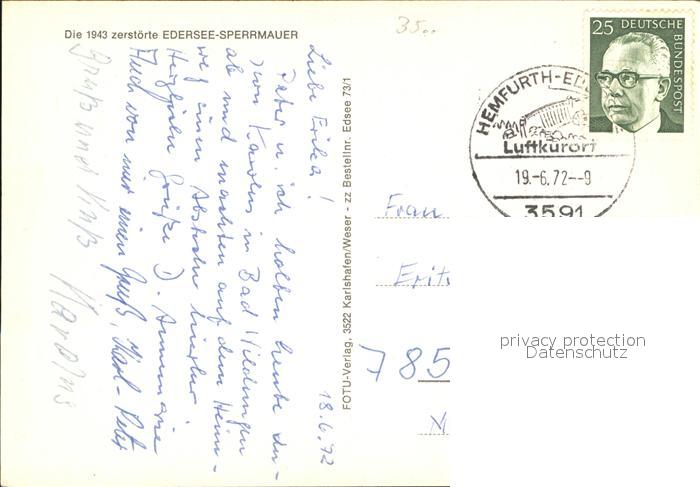 Die 1943 zerstörte EDERSEE-SPERRMAUER
35..
25 DEUTSCHE
BUNDESPOST
HEMFURTH-EDE
Luftkurort
19.-6.72--9
3591
18.6.72
Liebe Erika!
Peter u. ich holten heute
von Karolus in Bad Wildungen
ab und machten auf dem Heim-
weg einen Abstecher hierher.
Herzliche Grüße Annemarie
Auch von mir einen Gruß, Karl-Peter
Gruß und Kuß
Karolus
FOTU-Verlag, 3522 Karlshafen/Weser - zz Bestellnr. Edsee 73/1
Frau
785
privacy protection
Datenschutz